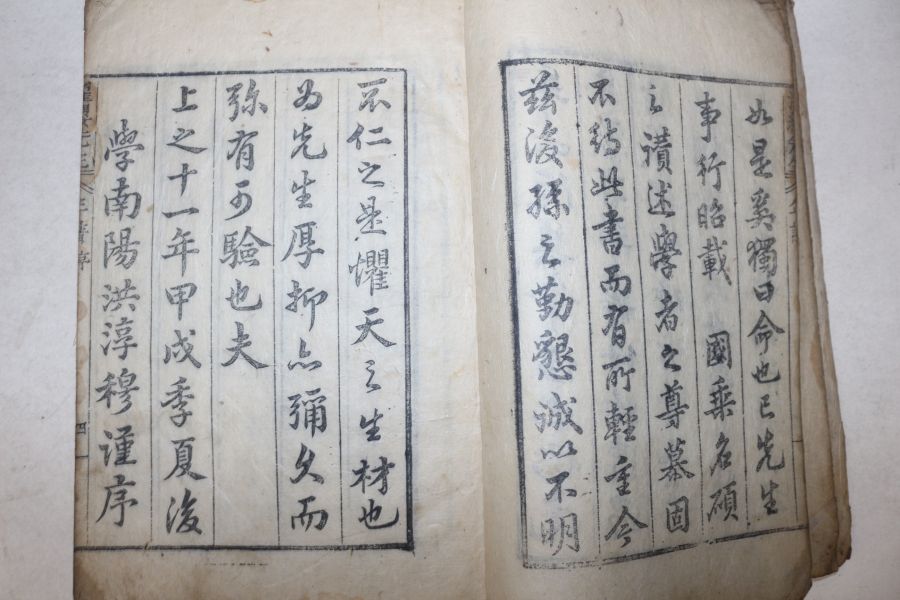 如是奚獨曰命也已先生
事行昭載　國乗名碩
之讃述學者之尊慕固
不待此書而有所輕重今
茲後孫之勤懇誠以不明
不仁之是懼天之生材也
為先生厚抑亦彌久而
弥有可驗也夫
上之十一年甲戌季夏後
學南陽洪淳穆謹序
年譜序
四